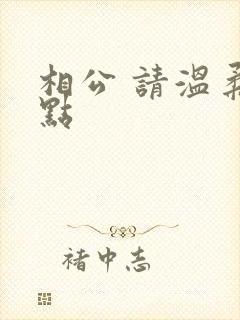 相公 請溫柔
點
褚中志